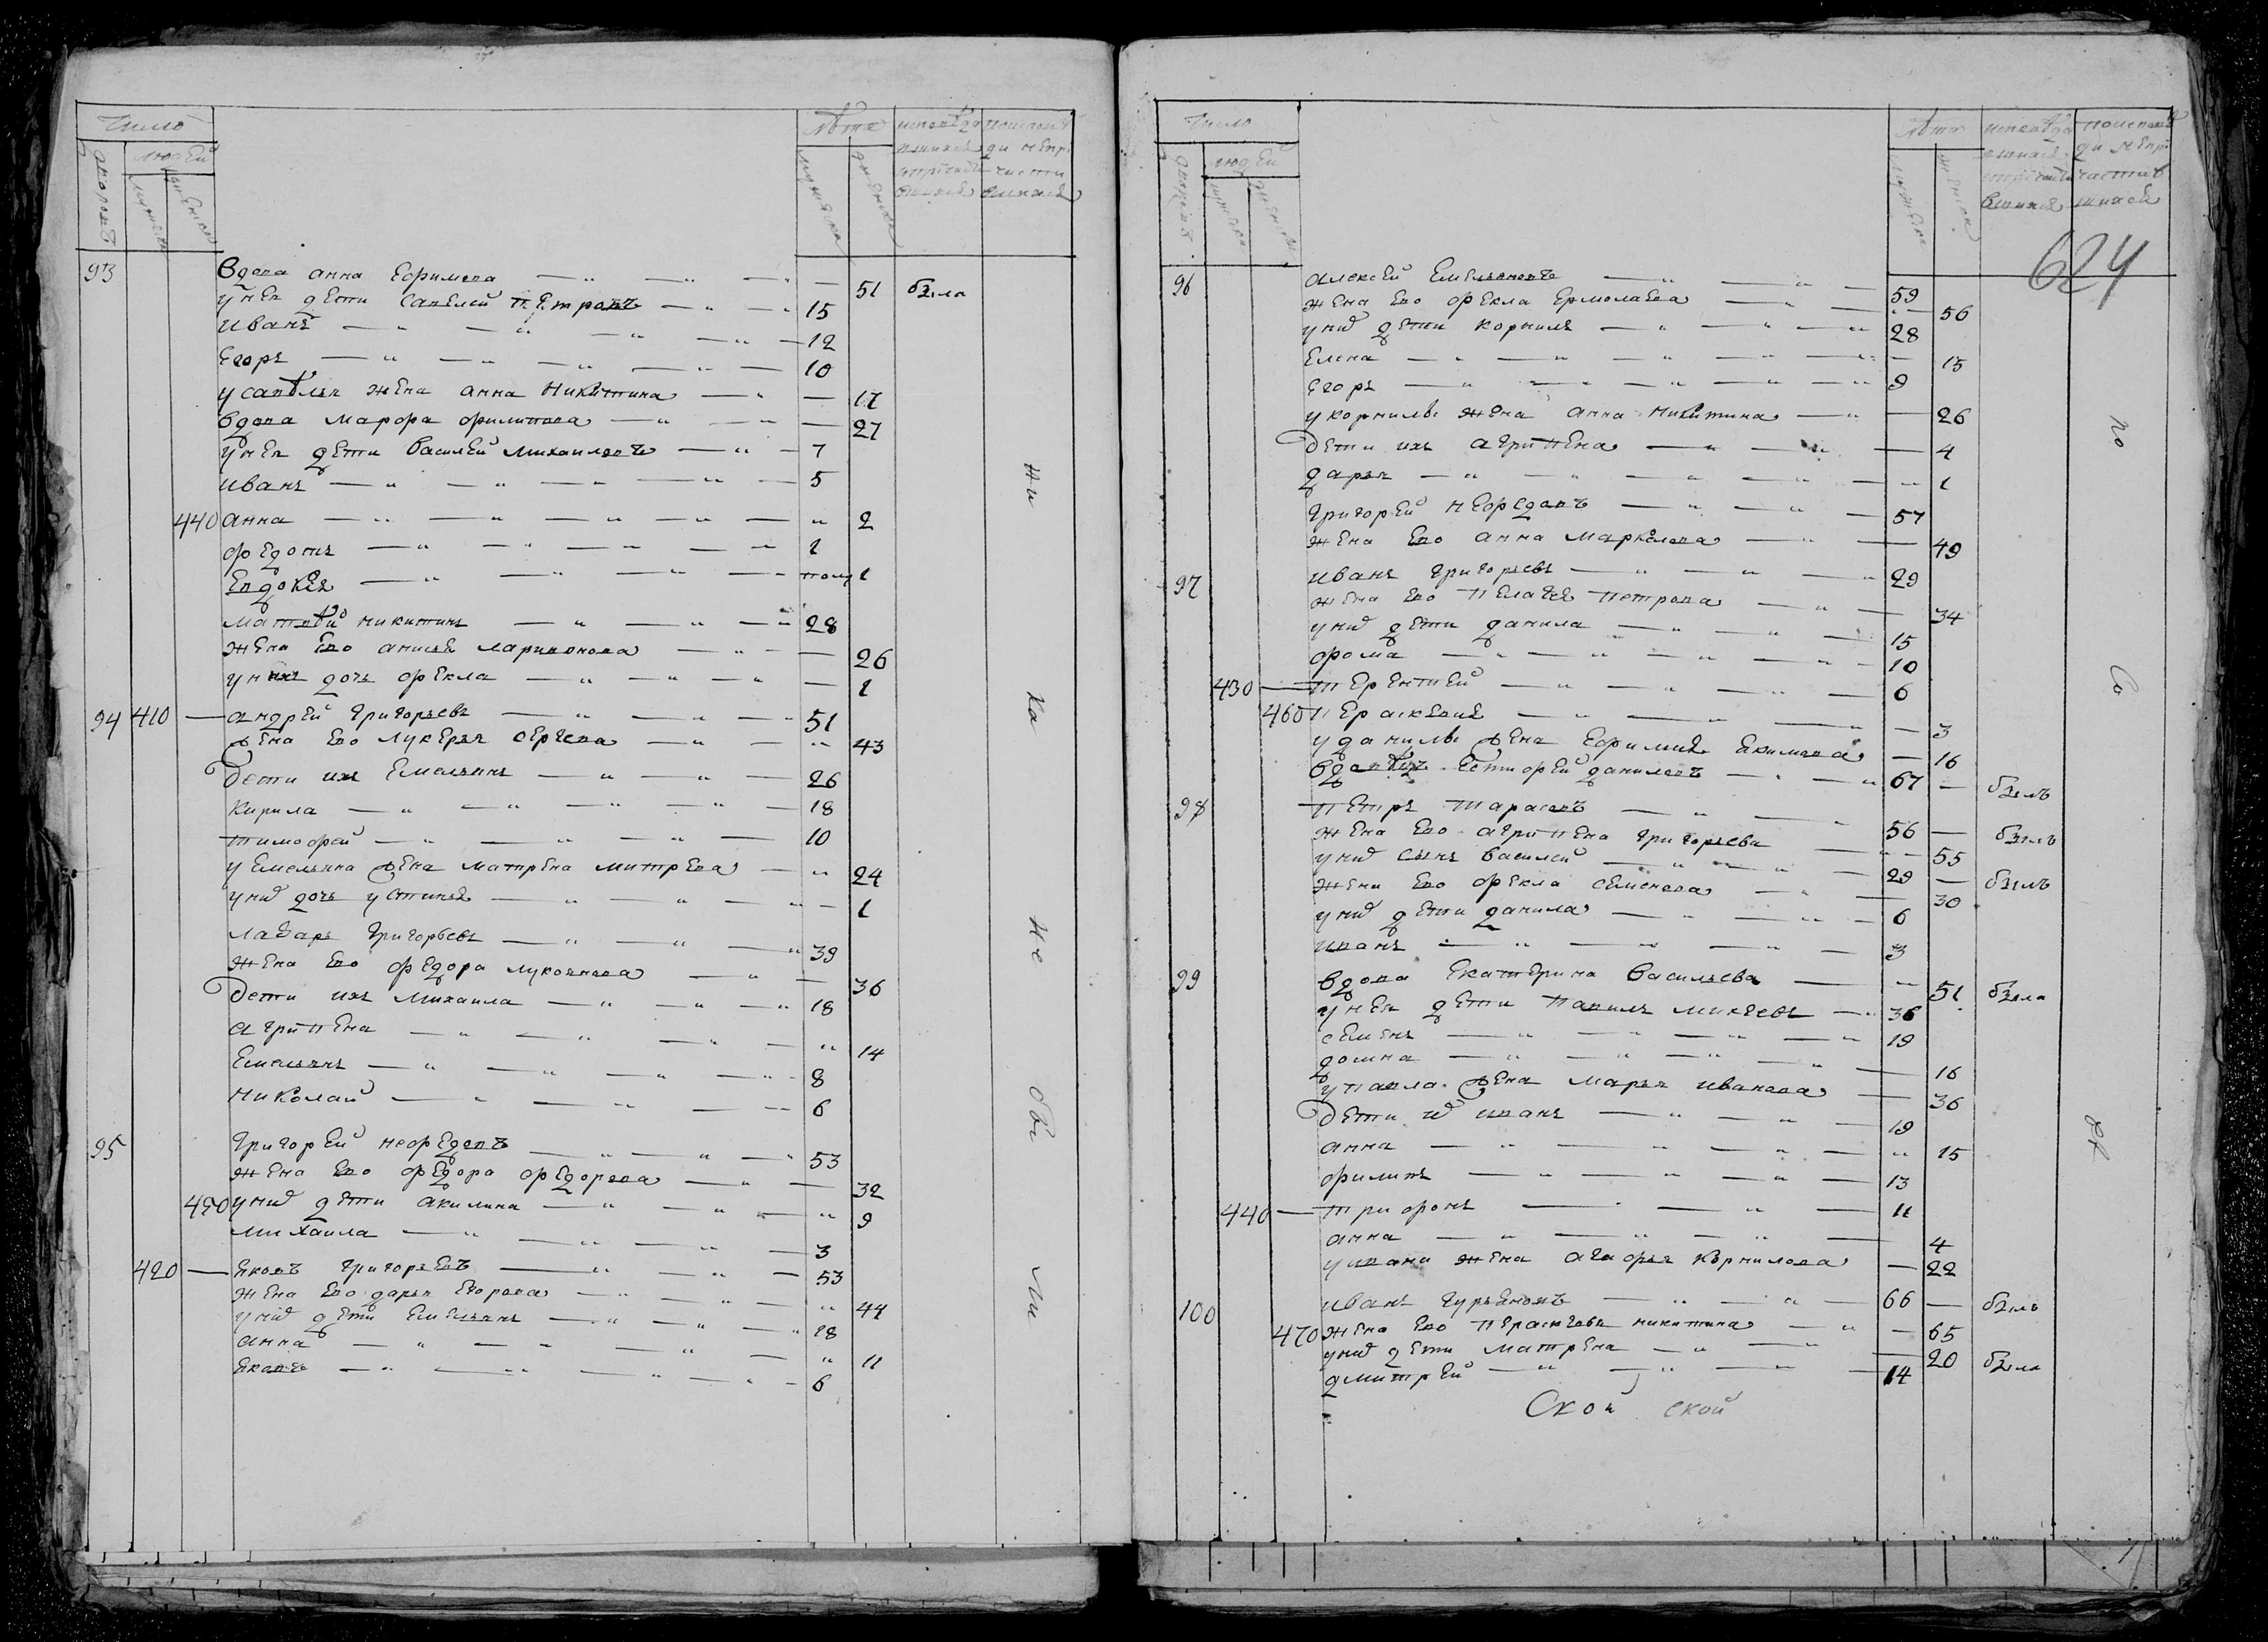 Число
людей
дворовъ
мужеска
женска
лѣта
мужеска
женска
93 вдова анна Ефимова — 51 была
у нея дети Савелей Петровъ 15
иванъ 12
Егоръ 10
у савѣлья жена анна Никитина 17
вдова Марфа филипова 27
у нея дети василей Михаиловъ 7
иванъ 5
440 анна 2
федотъ 1
Евдокія 1
матвѣй никитинъ 28
жена Ево анисья ларионова 26
у них дочь фекла 1
94 410 андрей григорьевъ 51
жена Ево лукерья сергева 43
дети ихъ Емельянъ 26
Кирила 18
тимофей 10
у Емельяна жена матрена митрева 24
у них дочь устинья 1
лазарь григорьевъ 39
жена Ево федора лукоянова 36
дети ихъ михаила 18
агрипена 14
Емельянъ 8
николай 6
95 григорей нефедовъ 53
жена Ево федора федорова 32
450 у них дети акилина 9
михаила 3
420 яковъ григорьевъ 53
жена Ево дарья Егорова 44
у них дети Емельянъ 18
анна 11
яковъ 6
ни ка не бы ли
Число
людей
дворовъ
мужеска
женска
лѣта
мужеска
женска
624
96 алексей Емельяновъ 59
жена Ево фекла Ермолаева 56
у них дети корнилъ 28
Елена 15
Егоръ 9
у корнилы жена анна никитина 26
дети ихъ агрипена 4
дарья 1
григорей нефедовъ 57
жена Ево анна маркелова 49
97 иванъ григорьевъ 29
жена Ево пелагея петрова 34
у них дети данила 15
фома 10
430 терентией 6
460 перасковья 3
у данилы жена Ефимия Екимова 16
вдовѣцъ тимофей даниловъ 67 — былъ
98 петръ тарасовъ 56 — былъ
жена Ево агрипена григорьева 55
у них сынъ василей 29 — былъ
жена Ево фекла семенова 30
у них дети данила 6
иванъ 3
99 вдова Екатерина васильева 51 была
у нея дети павилъ михеевъ 36
семенъ 19
домна 16
у павла жена марья иванова 36
дети их иванъ 19
анна 15
филипъ 13
440 трифонъ 11
анна 4
у ивана жена агафья корнилова 22
100 иванъ гурьяновъ 66 — былъ
470 жена Ево перасковья никитина 65
у них дети матрена 20 была
дмитрей 14
Ской ской
по